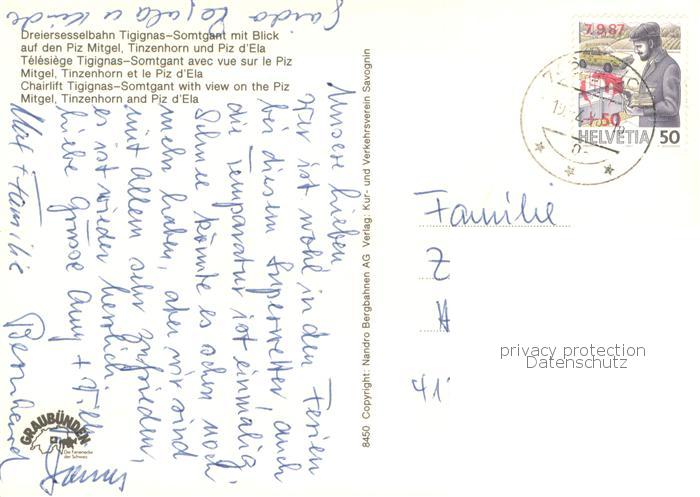 Dreiersesselbahn Tigignas–Somtgant mit Blick
auf den Piz Mitgel, Tinzenhorn und Piz d'Ela
Télésiège Tigignas–Somtgant avec vue sur le Piz
Mitgel, Tinzenhorn et le Piz d'Ela
Chairlift Tigignas–Somtgant with view on the Piz
Mitgel, Tinzenhorn and Piz d'Ela
Unsere lieben
Wir ist wohl in den Ferien
bei diesem Superwetter, auch
die Temparatur ist einmalig.
Schnee könnte es schon noch
mehr haben, aber wir sind
mit allem sehr zufrieden,
es ist wieder herrlich.
Liebe Grüsse Anny +
+ Familie
8450 Copyright: Nandro Bergbahnen AG Verlag: Kur- und Verkehrsverein Savognin
GRAUBÜNDEN
Die Ferienecke
der Schweiz
7.9.87
1.50
HELVETIA 50
Familie
Z
H
41
privacy protection
Datenschutz